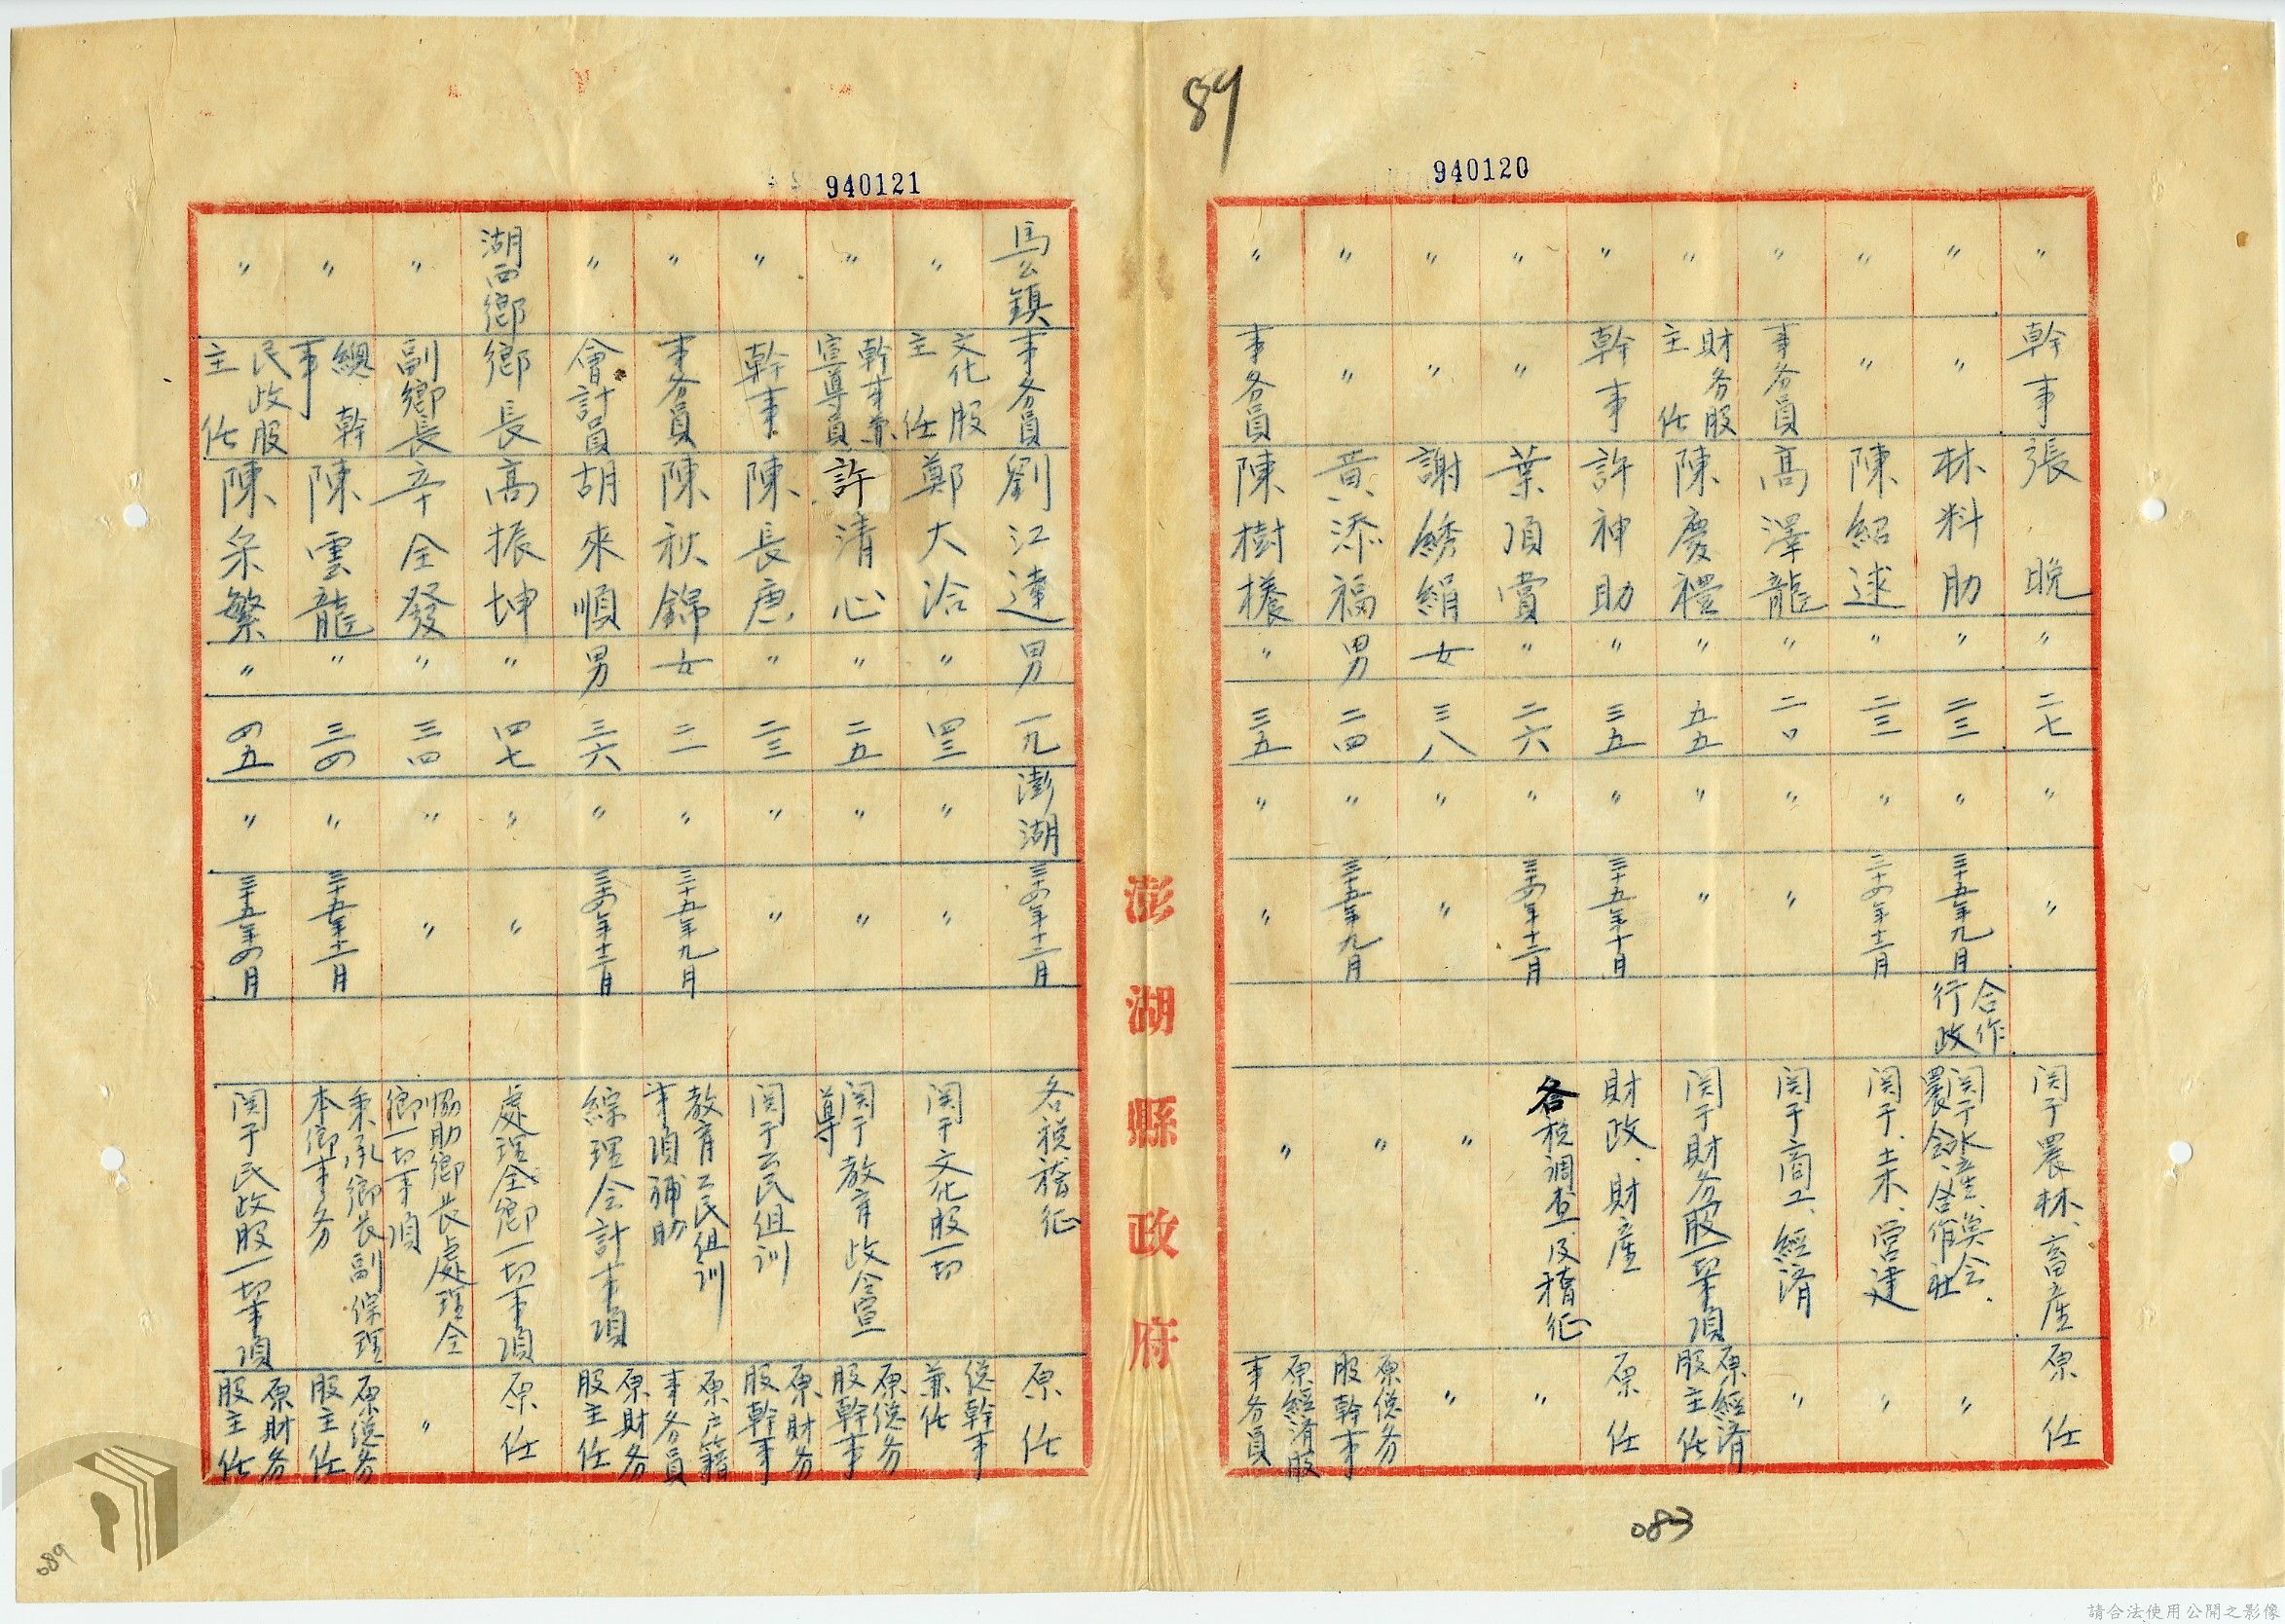 89
940120
〃 幹事 張晚 〃 二七 〃 〃 関于農林、畜産 原任
〃 〃 林料肋 〃 二三 〃 三十五年九月 合作行政 関于水產、漁会、農会、合作社 〃
〃 〃 陳紹逑 〃 二三 〃 三十四年十二月 関于土木、営建 〃
〃 事务員 高澤龍 〃 二〇 〃 〃 関于商工、經済 〃
〃 財务股主任 陳慶禮 〃 五五 〃 〃 関于財务股一切事項 原經済股主任
〃 幹事 許神助 〃 三五 〃 三十五年十月 財政、財產 原任
〃 〃 葉頂賞 〃 二六 〃 三十四年十二月 各税調查及稽征 〃
〃 〃 謝綉絹 女 三八 〃 〃 〃 〃
〃 〃 黄添福 男 二四 〃 三十五年九月 〃 原総务股幹事
〃 事务員 陳樹檨 〃 三五 〃 〃 〃 原經済股事务員
083
澎湖縣政府
940121
馬公鎮 事务員 劉江達 男 一九 澎湖 三十四年十二月 各税稽征 原任
〃 文化股主任 鄭大洽 〃 四三 〃 〃 関于文化股一切 総幹事兼任
〃 幹事兼宣導員 許清心 〃 二五 〃 〃 関于教育政令宣導 原総务股幹事
〃 幹事 陳長庚 〃 二三 〃 〃 関于公民组训 原財务股幹事
〃 事务員 陳秋錦 女 二一 〃 三十五年九月 教育公民组训事項補助 原户籍事务員
〃 會計員 胡來順 男 三六 〃 三十四年十二月 綜理会計事項 原財务股主任
湖西鄉 鄉長 高振坤 〃 四七 〃 〃 處理全鄉一切事項 原任
〃 副鄉長 辛全發 〃 三四 〃 〃 協助鄉長處理全鄉一切事項 〃
〃 總幹事 陳雲龍 〃 三四 〃 三十五年十一月 秉承鄉長副綜理本鄉事务 原総务股主任
〃 民政股主任 陳籴繁 〃 四五 〃 三十五年四月 関于民政股一切事項 原財务股主任
089
請合法使用公開之影像